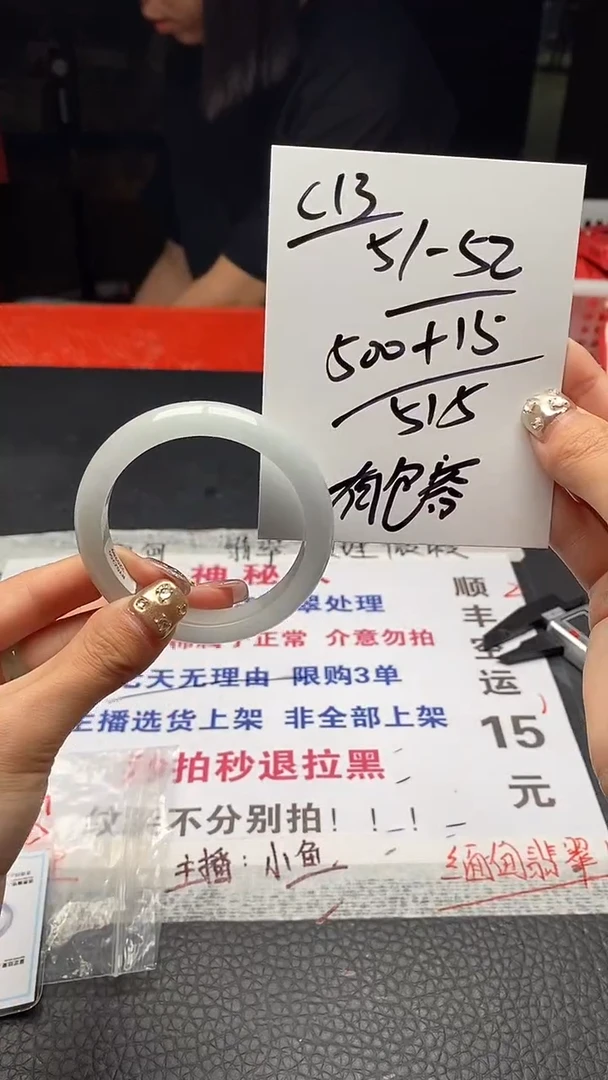 C13
51-52
500+15
515
翡翠
神秘人
翠处理
正常 介意勿拍
七天无理由 限购3单
主播选货上架 非全部上架
秒拍秒退拉黑
不分别拍！！！
主播：小鱼
顺丰空运15元
缅甸翡翠